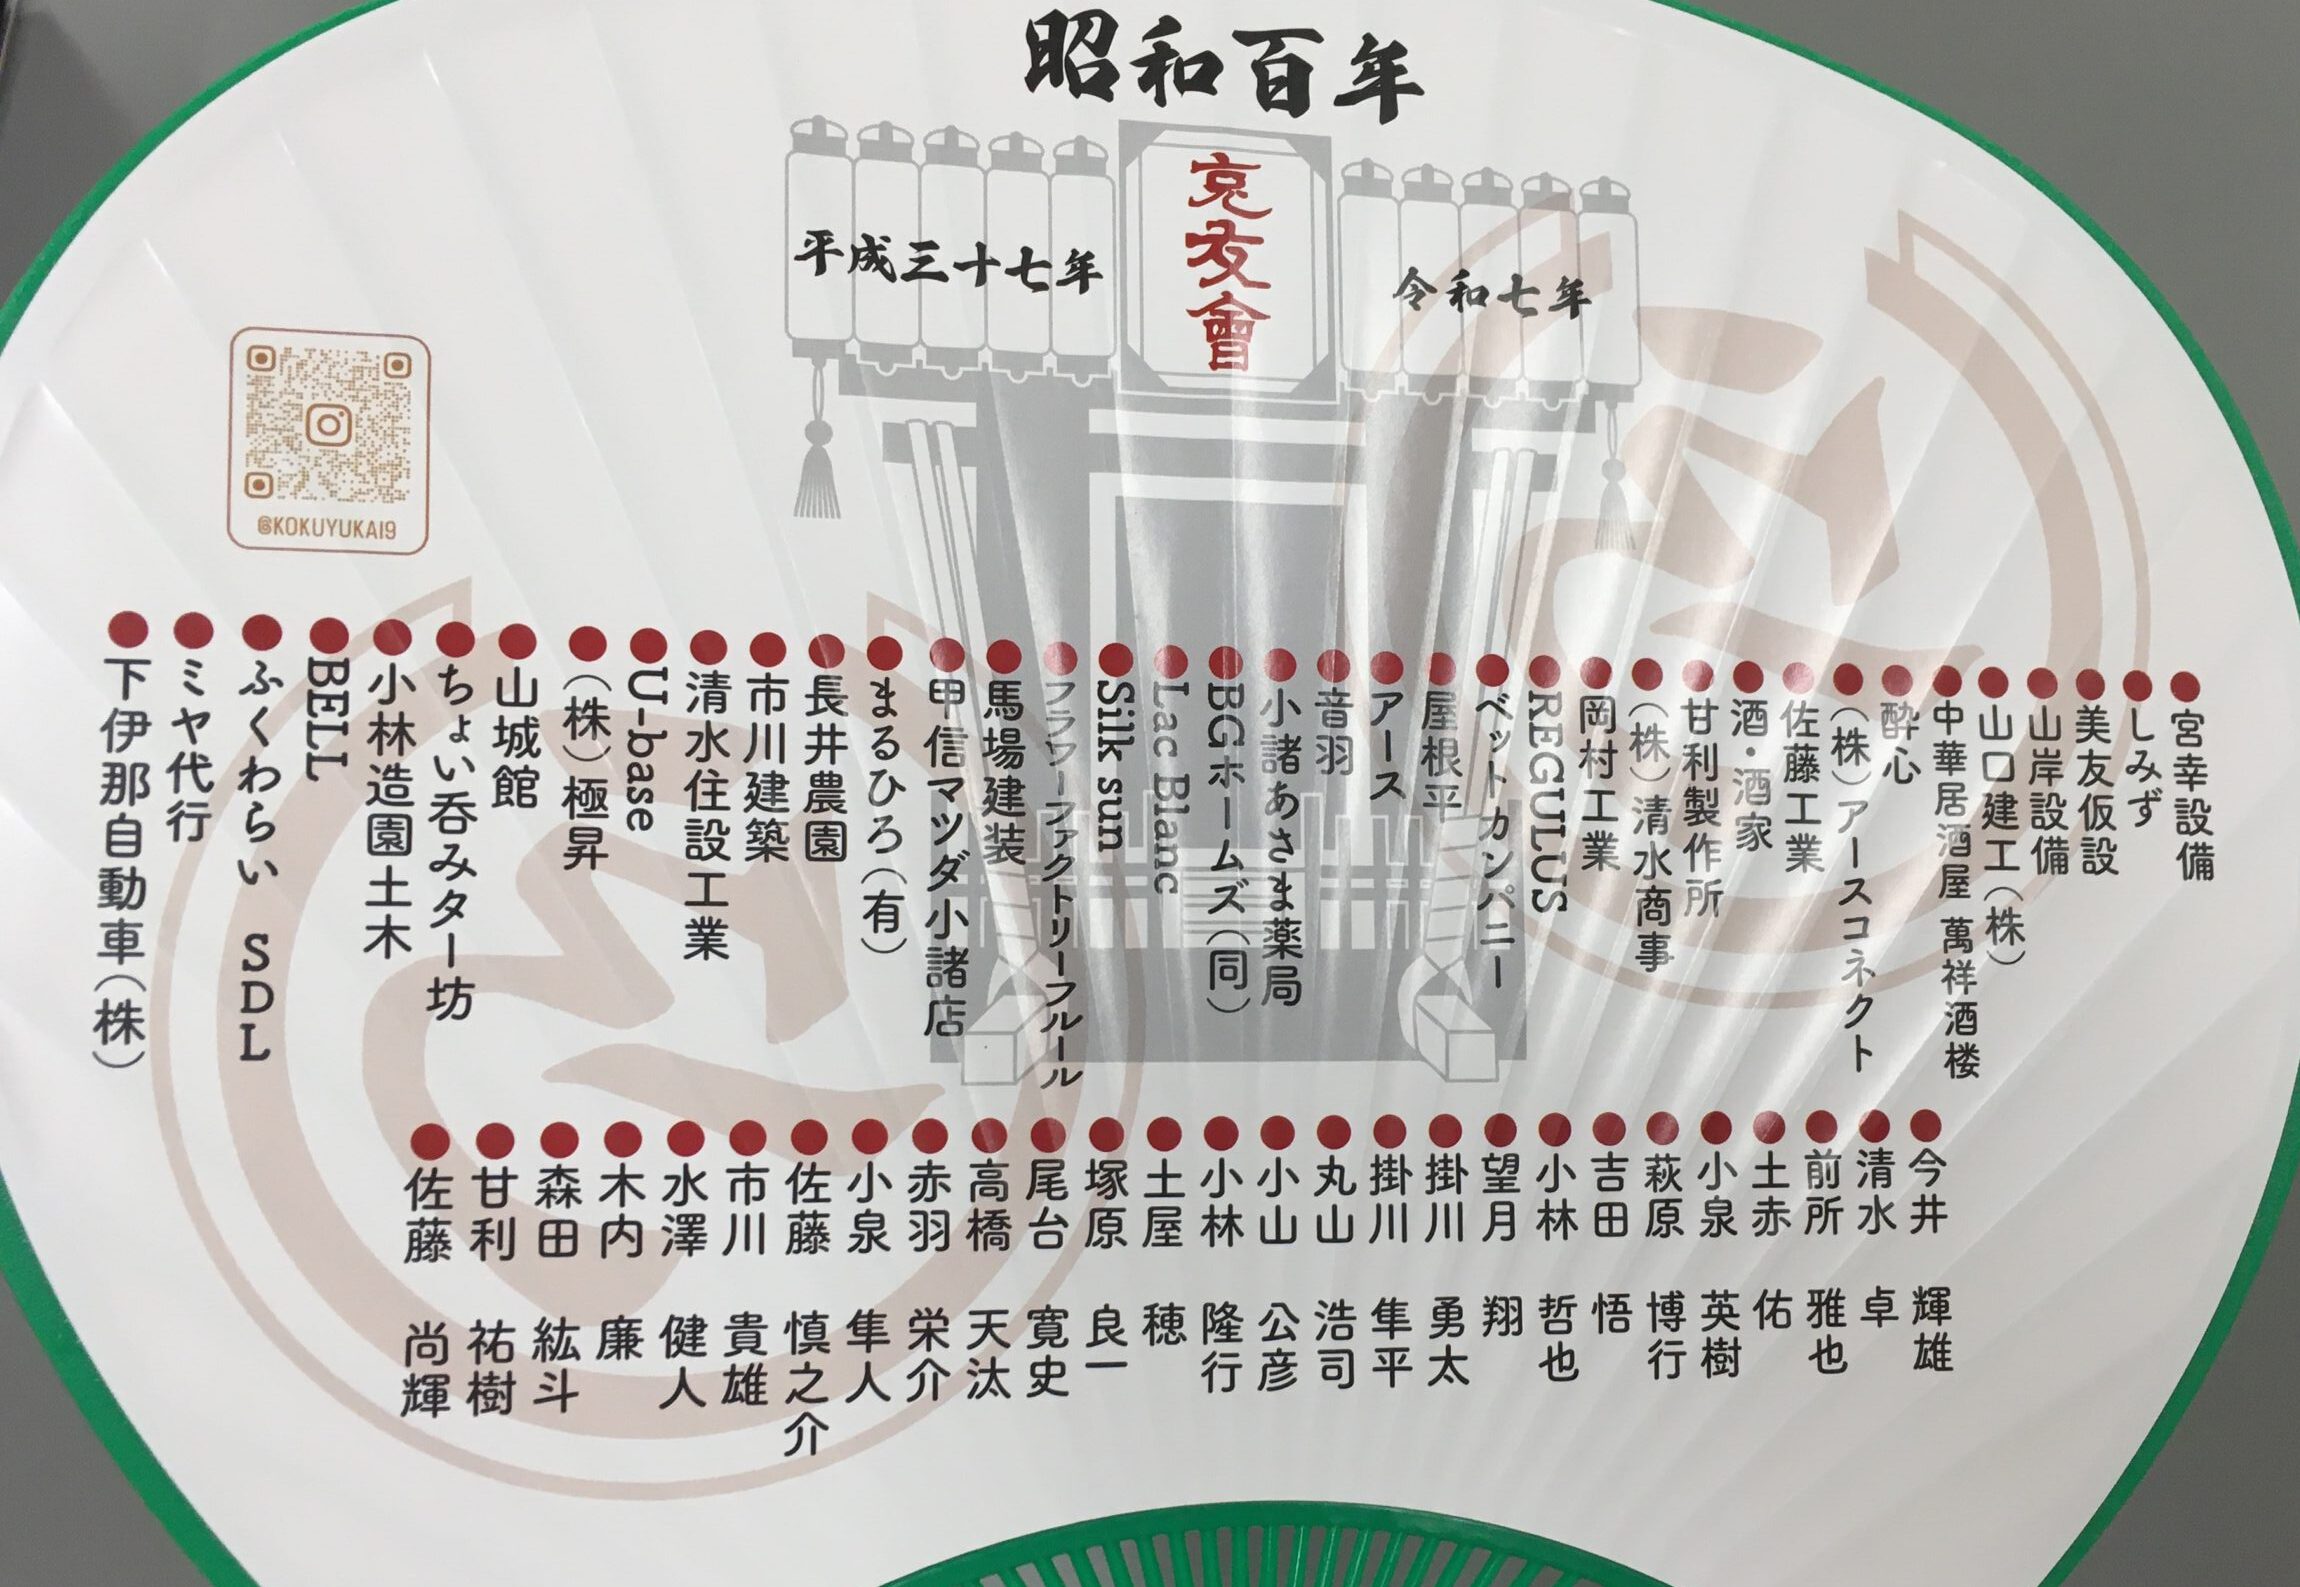 昭和百年
令和七年
友會
平成三十七年
@KOKUYUKAI9
宮幸設備
しみず
美友仮設
山岸設備
山口建工(株)
中華居酒屋 萬祥酒楼
酔心
(株)アースコネクト
佐藤工業
酒・酒家
甘利製作所
(株)清水商事
岡村工業
REGULUS
ベットカンパニー
屋根平
アース
音羽
小諸あさま薬局
BGホームズ(同)
Lac Blanc
Silk sun
フラワーファクトリーフルール
馬場建装
甲信マツダ小諸店
まるひろ(有)
長井農園
市川建築
清水住設工業
U-base
(株)極昇
山城館
ちょい呑みター坊
小林造園土木
BELL
ふくわらい SDL
ミヤ代行
下伊那自動車(株)
今井 輝雄
清水 卓
前所 雅也
土赤 佑
小泉 英樹
萩原 博行
吉田 悟
小林 哲也
望月 翔
掛川 勇太
掛川 隼平
丸山 浩司
小山 公彦
小林 隆行
土屋 穂
塚原 良一
尾台 寛史
高橋 天汰
赤羽 栄介
小泉 隼人
佐藤 慎之介
市川 貴雄
水澤 健人
木内 廉
森田 紘斗
甘利 祐樹
佐藤 尚輝